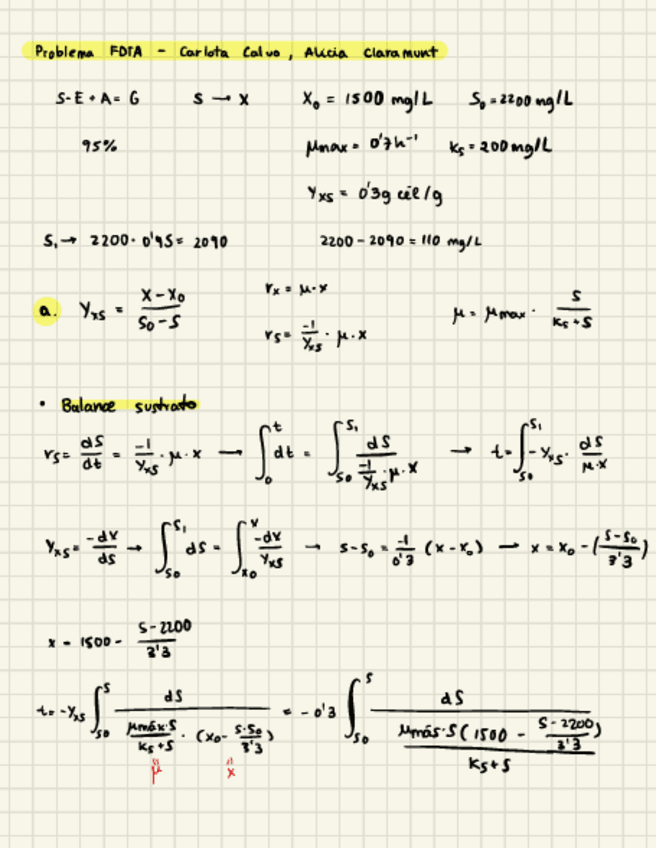 Problema FDTA - Carlota Calvo, Alicia Claramunt
S-E+A=G S → X X₀ = 1500 mg/L S₀ = 2200 mg/L
95% μmax = 0'7h⁻¹ Ks = 200 mg/L
Yxs = 0'3g cél/g
S₁ → 2200 · 0'95 = 2090 2200 - 2090 = 110 mg/L
a. Yxs = (X-X₀)/(S₀-S) rx = μ·x rs = -1/Yxs · μ·x μ = μmax · S/(Ks+S)
• Balance sustrato
rs = dS/dt = -1/Yxs · μ·x → ∫₀ᵗ dt = ∫_S₀^S₁ dS/(-1/Yxs · μ·x) → t = ∫_S₀^S₁ -Yxs · dS/(μ·x)
Yxs = -dx/ds → ∫_S₀^S₁ ds = ∫_x₀^x -dx/Yxs → S-S₀ = -1/0'3 (x-x₀) → x = x₀ - (S-S₀/3'3)
x = 1500 - (S-2200)/3'3
t = -Yxs ∫_S₀^S dS/(μmáx·S/(Ks+S) · (x₀ - S·S₀/3'3)) = -0'3 ∫_S₀^S dS/(μmás·S(1500 - (S-2200)/3'3)/(Ks+S))
μ x